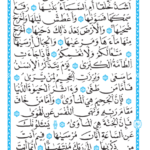 أَشَدُّ خَلْقًا أَمِ ٱلسَّمَآءُ بَنَىٰهَا رَفَعَ
سَمْكَهَا فَسَوَّىٰهَا وَأَغْطَشَ لَيْلَهَا وَأَخْرَجَ
ضُحَىٰهَا وَٱلْأَرْضَ بَعْدَ ذَٰلِكَ دَحَىٰهَا أَخْرَجَ
مِنْهَا مَآءَهَا وَمَرْعَىٰهَا وَٱلْجِبَالَ أَرْسَىٰهَا
مَتَٰعًا لَّكُمْ وَلِأَنْعَٰمِكُمْ فَإِذَا جَآءَتِ
ٱلطَّآمَّةُ ٱلْكُبْرَىٰ يَوْمَ يَتَذَكَّرُ ٱلْإِنسَٰنُ
مَا سَعَىٰ وَبُرِّزَتِ ٱلْجَحِيمُ لِمَن يَرَىٰ
فَأَمَّا مَن طَغَىٰ وَءَاثَرَ ٱلْحَيَوٰةَ ٱلدُّنْيَا
فَإِنَّ ٱلْجَحِيمَ هِىَ ٱلْمَأْوَىٰ وَأَمَّا مَنْ خَافَ
مَقَامَ رَبِّهِۦ وَنَهَى ٱلنَّفْسَ عَنِ ٱلْهَوَىٰ
فَإِنَّ ٱلْجَنَّةَ هِىَ ٱلْمَأْوَىٰ يَسْـَٔلُونَكَ
عَنِ ٱلسَّاعَةِ أَيَّانَ مُرْسَىٰهَا فِيمَ أَنتَ